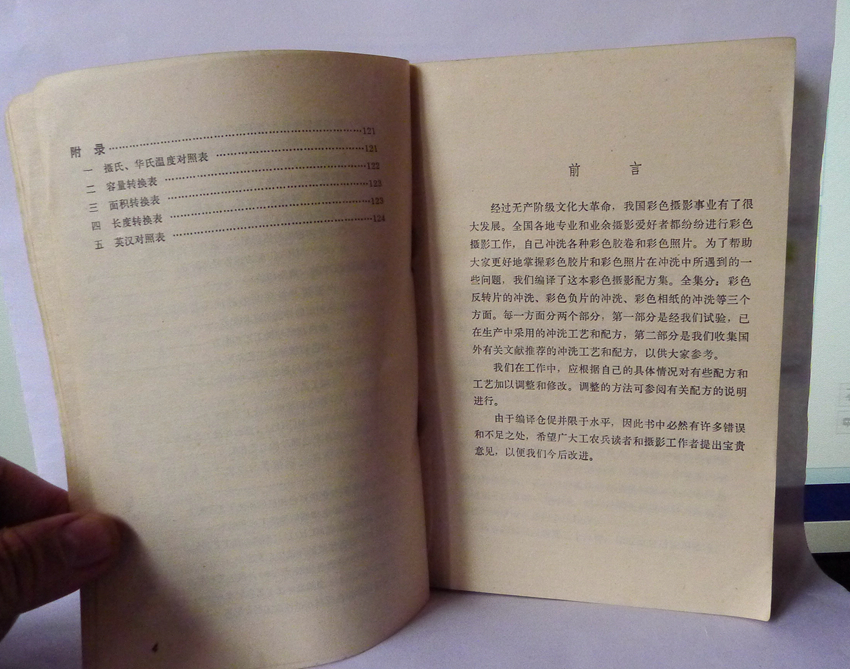 附 录……121
一 摄氏、华氏温度对照表……121
二 容量转换表……122
三 面积转换表……123
四 长度转换表……123
五 英汉对照表……124
4
前 言
经过无产阶级文化大革命，我国彩色摄影事业有了很
大发展。全国各地专业和业余摄影爱好者都纷纷进行彩色
摄影工作，自己冲洗各种彩色胶卷和彩色照片。为了帮助
大家更好地掌握彩色胶片和彩色照片在冲洗中所遇到的一
些问题，我们编译了这本彩色摄影配方集。全集分：彩色
反转片的冲洗、彩色负片的冲洗、彩色相纸的冲洗等三个
方面。每一方面分两个部分，第一部分是经我们试验，已
在生产中采用的冲洗工艺和配方，第二部分是我们收集国
外有关文献推荐的冲洗工艺和配方，以供大家参考。
我们在工作中，应根据自己的具体情况对有些配方和
工艺加以调整和修改。调整的方法可参阅有关配方的说明
进行。
由于编译仓促并限于水平，因此书中必然有许多错误
和不足之处，希望广大工农兵读者和摄影工作者提出宝贵
意见，以便我们今后改进。